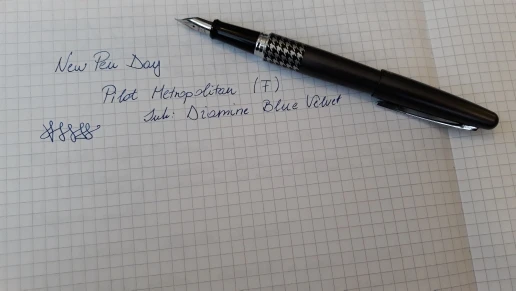 New Pen Day
Pilot Metropolitan (F)
Ink: Diamine Blue Velvet